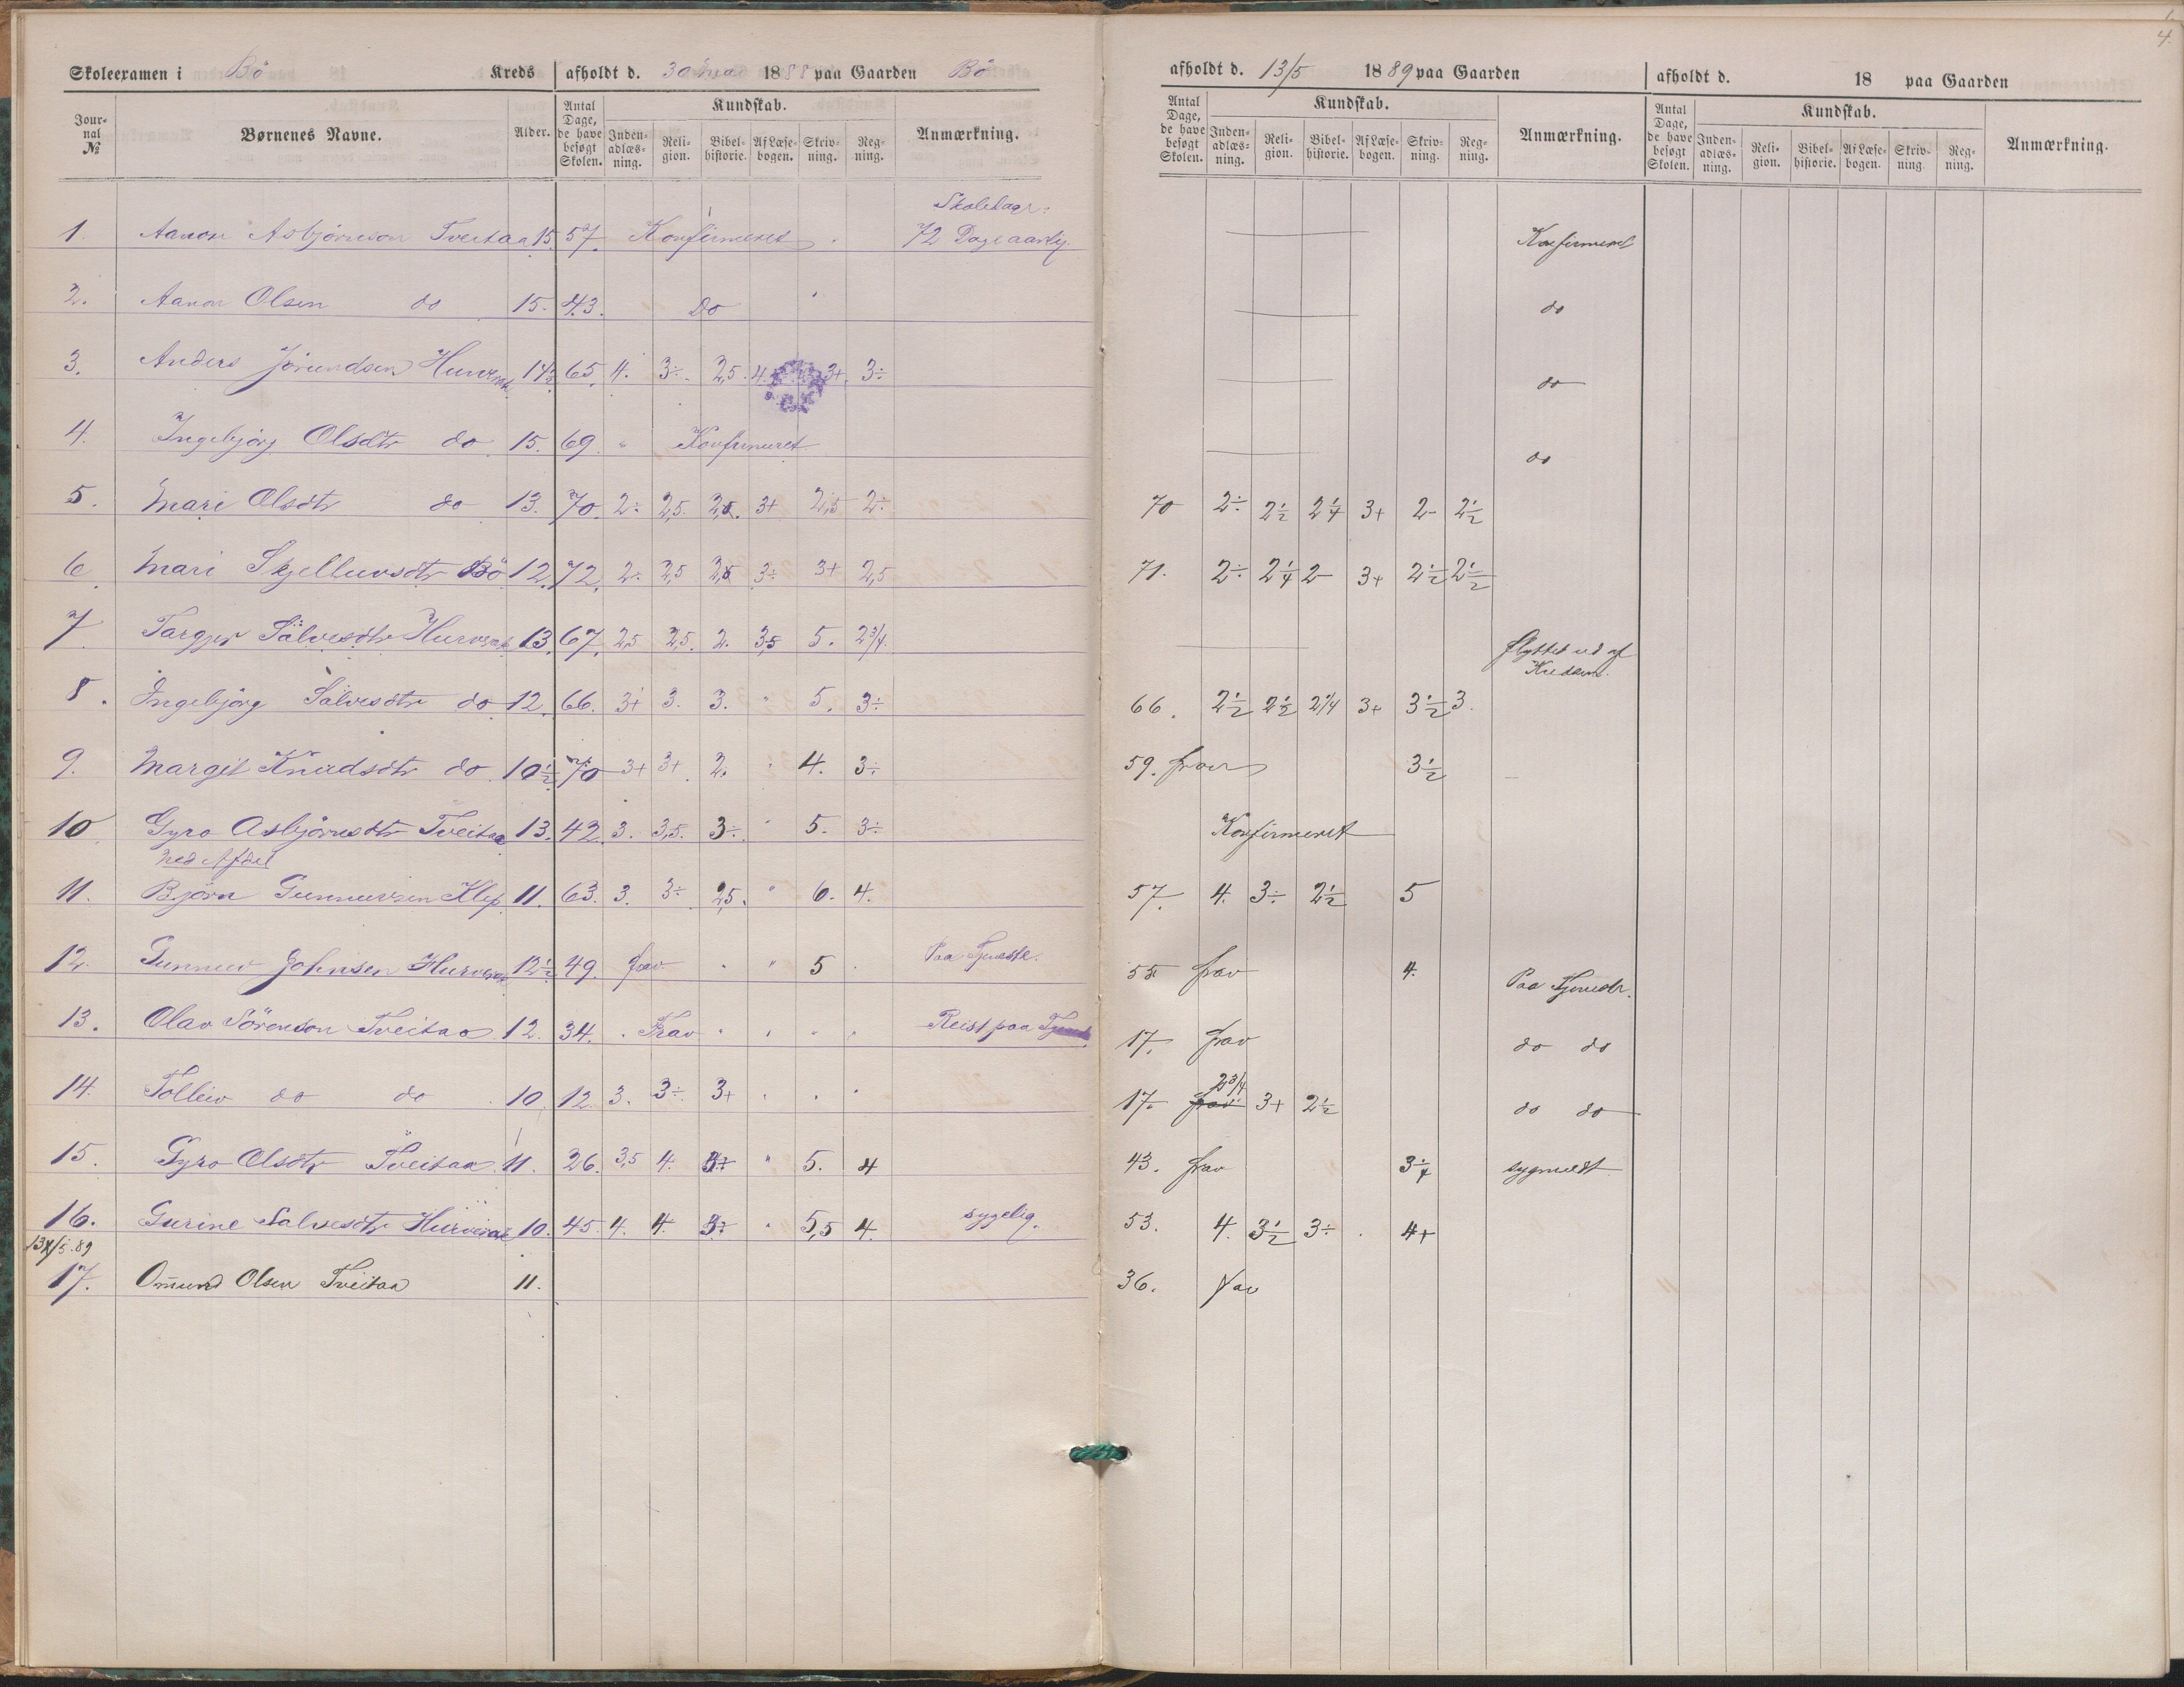 Skoleexamen i Bö Kreds afholdt d. 30 mai 1888 paa Gaarden Bö
Jour-nal № Børnenes Navne. Alder. Antal Dage, de have besøgt Skolen. Kundskab. Inden-adlæs-ning. Reli-gion. Bibel-historie. Af Læse-bogen. Skriv-ning. Reg-ning. Anmærkning.
Skoledage
1. Aanon Asbjörnson Tveitaa 15. 57. Konfirmeret 72 Dage aarlig.
2. Aanon Olsen do 15. 43. Do
3. Anders Jörundsen 14½ 65. 4. 3÷ 2,5 4. 3+. 3÷
4. Ingebjörg Olsdtr do 15. 69. " Konfirmeret
5. Mari Olsdtr do 13. 70. 2÷ 2,5. 2,5. 3+ 2,5 2÷
6. Mari Skjelluvsdtr Bö 12. 72. 2÷ 2,5 2,5 3÷ 3+ 2,5
7. Targjer Sälvesdtr 13. 67. 2,5 2,5. 2. 3,5 5. 2¾.
8. Ingebjörg Sälvesdtr do 12. 66. 3+ 3. 3. " 5. 3÷
9. Margit Knudsdtr do 10½ 70 3+ 3+. 2. " 4. 3÷
10. Gyro Asbjörnsdtr Tveitaa 13. 42. 3. 3,5. 3÷. " 5. 3÷
ned Afdel
11. Björn Gunnuvsen Klep 11. 63. 3. 3÷ 2,5. " 6. 4.
12. Gunnuv Johnsen 12½ 49. frav. " " 5. Paa Tjeneste.
13. Olav Sörenson Tveitaa 12. 34. " Frav " " " " Reist paa
14. Tolleiv do do 10. 12. 3. 3÷ 3+ " " "
15. Gyro Olsdtr Tveitaa 11. 26. 3,5 4. " 5. 4
16. Gurine Salvesdtr 10. 45. 4. 4. " 5,5 4. sygelig.
17. Omund Olsen Tveitaa 11.
afholdt d. 13/5 1889 paa Gaarden
Antal Dage, de have besøgt Skolen. Kundskab. Inden-adlæs-ning. Reli-gion. Bibel-historie. Af Læse-bogen. Skriv-ning. Reg-ning. Anmærkning.
Konfirmeret
do
do
do
70 2÷ 2½ 2¼ 3+ 2- 2½
71. 2÷ 2¼ 2- 3+ 2½ 2½
flyttet ud af
Kredsen.
66. 2½ 2½ 2¼ 3+ 3½ 3.
59. frav 3½
Konfirmeret
57. 4. 3÷ 2½ 5
55 frav 4. Paa Tjeneste.
17. frav do do
17. frav 2¾ 3+ 2½ do do
43. frav 3¼ sygmeldt
53. 4. 3½ 3÷ . 4+
36. frav
afholdt d. 18 paa Gaarden
Antal Dage, de have besøgt Skolen. Kundskab. Inden-adlæs-ning. Reli-gion. Bibel-historie. Af Læse-bogen. Skriv-ning. Reg-ning. Anmærkning.
4.